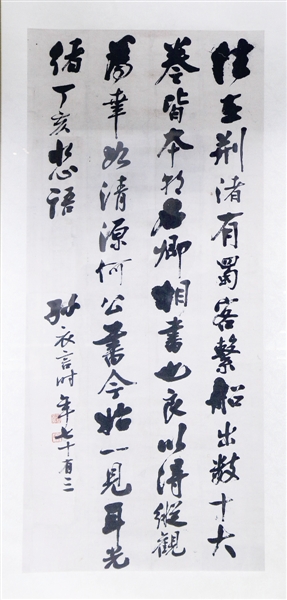 往在荆渚有蜀客繫船出數十大
卷皆本朝名卿相書也良以得縱觀
為幸如清源何公書今始一見耳光
緒丁亥語
孫衣言時年七十有